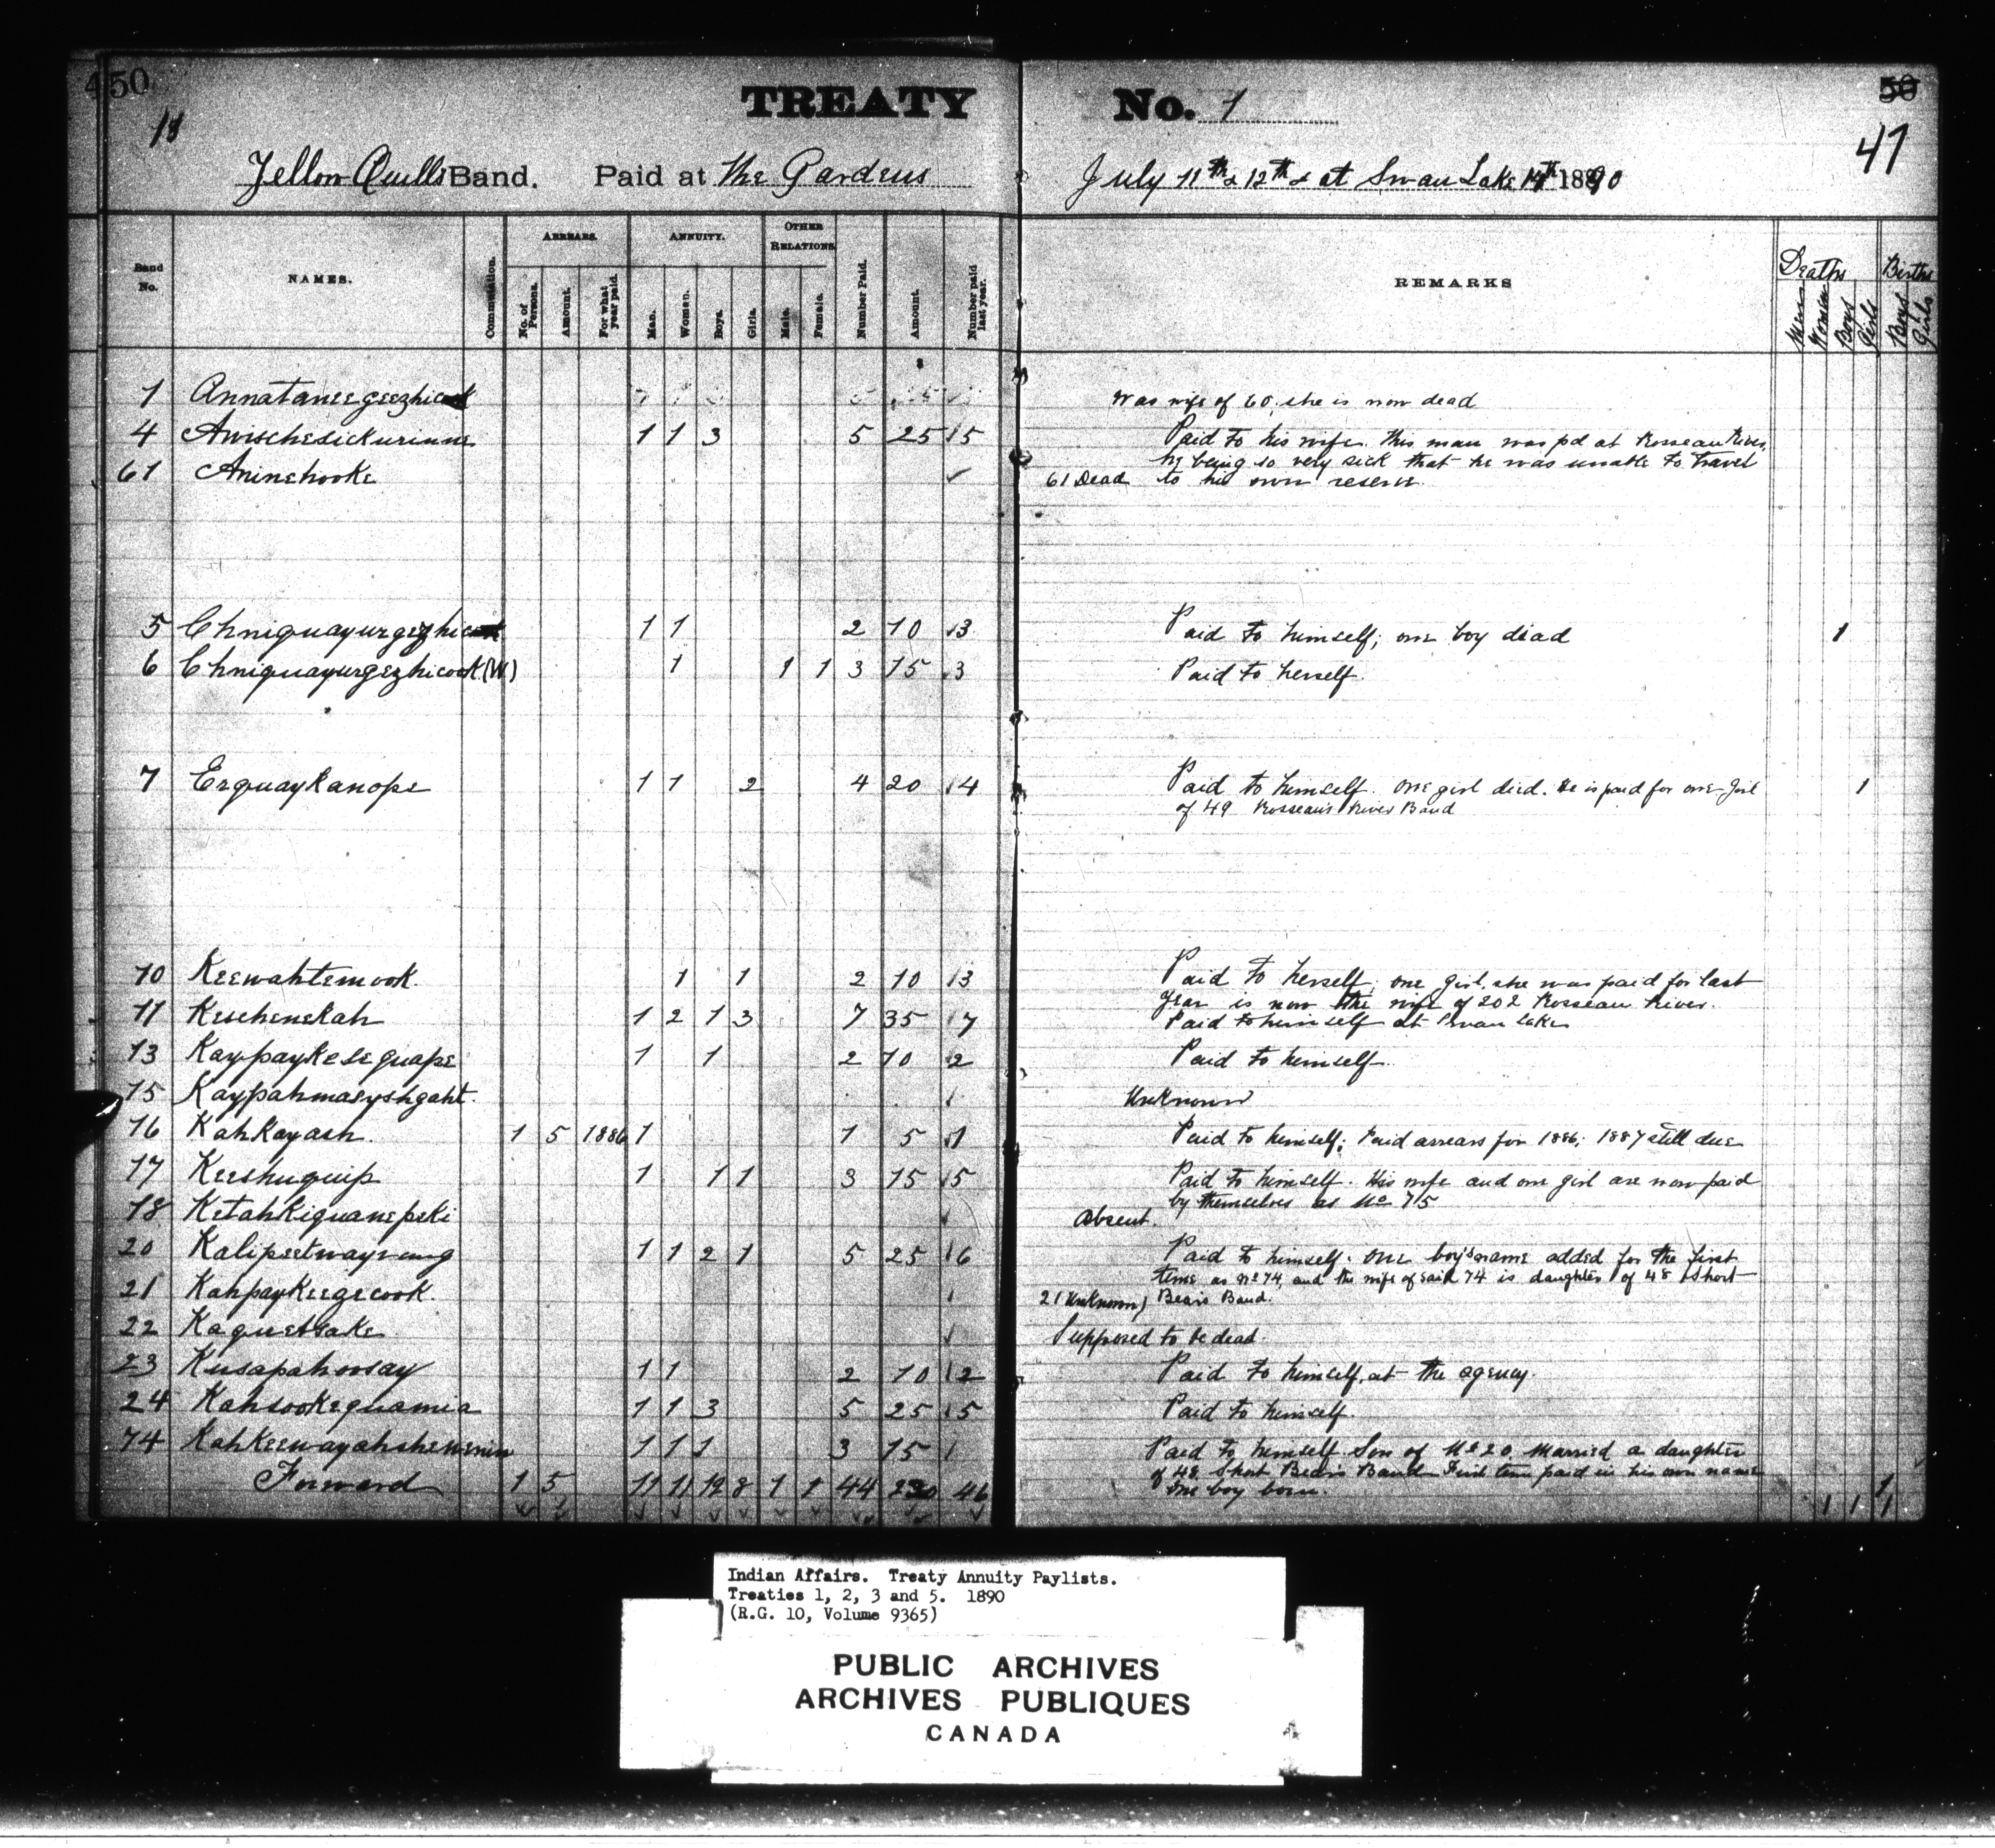 450
TREATY No. 1
50
18
47
Yellow Quills Band. Paid at The Gardens July 11th & 12th & at Swan Lake 14th 1890
Band No. NAMES. Commutation. ARREARS. No. of Persons. Amount. For what year paid. ANNUITY. Man. Woman. Boys. Girls. OTHER RELATIONS. Male. Female. Number Paid. Amount. Number paid last year. REMARKS Deaths Men Women Boys Girls Births Boys Girls
1 Was wife of 60, she is now dead
4 Awischesickurinine 1 1 3 5 25 5 Paid to his wife. This man was pd at Rosseau River,
he being so very sick that he was unable to travel
61 Aninehooke 61 Dead to his own reserve
5 1 1 2 10 3 Paid to himself; one boy dead 1
6 Chniquayurgezhicook (W) 1 1 1 3 15 3 Paid to herself.
7 Erquaykanope 1 1 2 4 20 4 Paid to himself. One girl died. He is paid for one girl 1
of 49 Rosseau's River Band
10 Keewahtemook. 1 1 2 10 3 Paid to herself; one girl, she was paid for last
year is now the wife of 202 Rosseau River.
11 Keschenekah 1 2 1 3 7 35 7 Paid to himself at Swan Lake
13 Kaypaykeseguape 1 1 2 10 2 Paid to himself.
15 Kaypahmasyshgaht. Unknown
16 Kahkayash. 1 5 1886 1 1 5 1 Paid to himself; Paid arrears for 1886; 1887 still due
17 Keeshuquip 1 1 1 3 15 5 Paid to himself. His wife and one girl are now paid
by themselves as No 75
18 Ketahkiguanepeki Absent.
20 1 1 2 1 5 25 6 Paid to himself. One boy's name added for the first
time as No 74, and the wife of said 74 is daughter of 48 Short
21 Kahpaykeegecook. 21 Unknown) Bears Band.
22 Supposed to be dead.
23 Kusapahoosay 1 1 2 10 2 Paid to himself, at the agency.
24 Kahsookequamia 1 1 3 5 25 5 Paid to himself.
74 Kahkeewayahshewenin 1 1 1 3 15 Paid to himself Son of No 20 Married a daughter
of 48 Short Bears Band First time paid in his own name
one boy born. 1
Forward 1 5 11 11 12 8 1 1 44 46 1 1 1
Indian Affairs. Treaty Annuity Paylists.
Treaties 1, 2, 3 and 5. 1890
(R.G. 10, Volume 9365)
PUBLIC ARCHIVES
ARCHIVES PUBLIQUES
CANADA